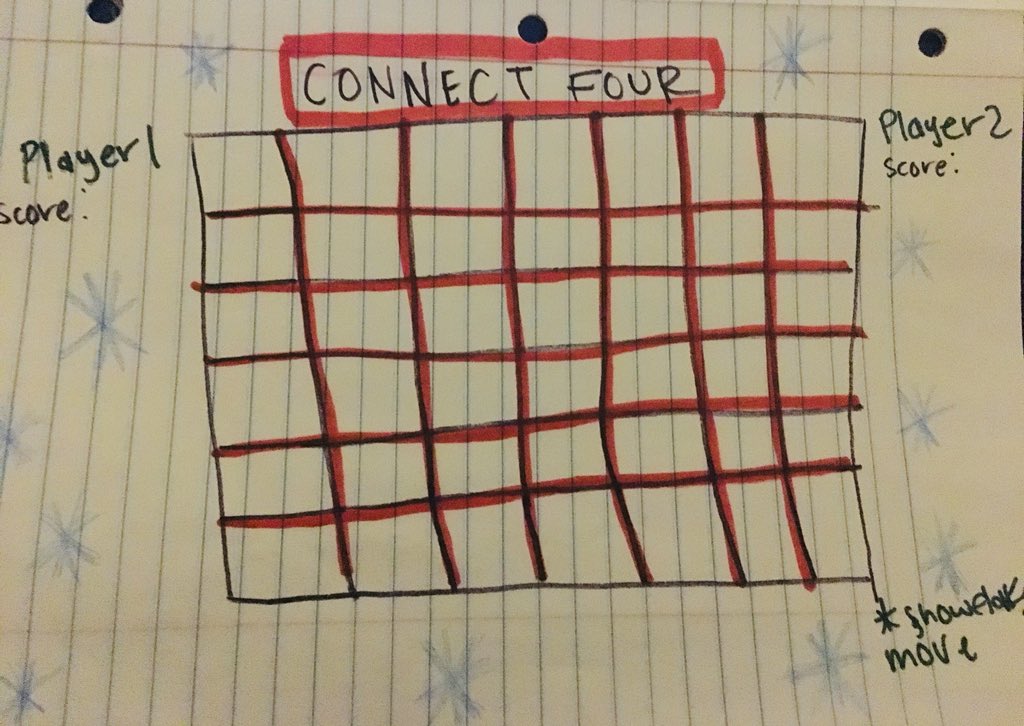 CONNECT FOUR
Player 1
score:
Player 2
score:
* snowflakes
move